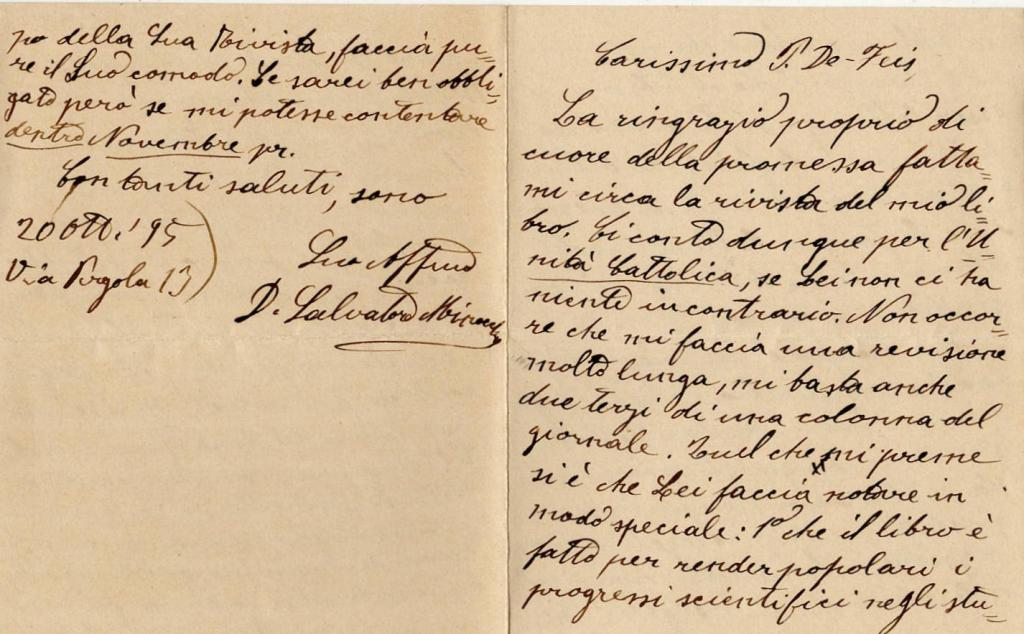 Carissimo P. De-Feis,
La ringrazio proprio di
cuore della promessa fatta=
mi circa la rivista del mio li=
bro. Ci conto dunque per l'U=
nità Cattolica, se Lei non ci ha
niente in contrario. Non occor=
re che mi faccia una revisione
molto lunga, mi basta anche
due terzi di una colonna del
giornale. Quel che mi preme
si è che Lei faccia notare in
modo speciale: 1º che il libro è
fatto per render popolari i
progressi scientifici negli stu=
po della Sua Rivista, faccia pu=
re il Suo comodo. Le sarei ben obbli=
gato però se mi potesse contentare
dentro Novembre pr.
Con tanti saluti, sono
20 Ott. '95
Via Pergola 13)
Suo Affmo
D. Salvatore Minocchi